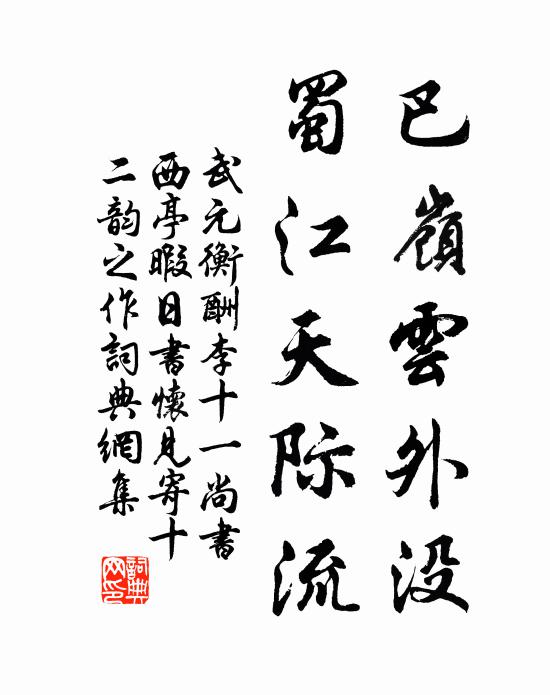 巴嶺雲外没
蜀江天际流
武元衡酬李十一尚書
西亭暇日書懷見寄十
二韵之作詞典網集
詞典网印